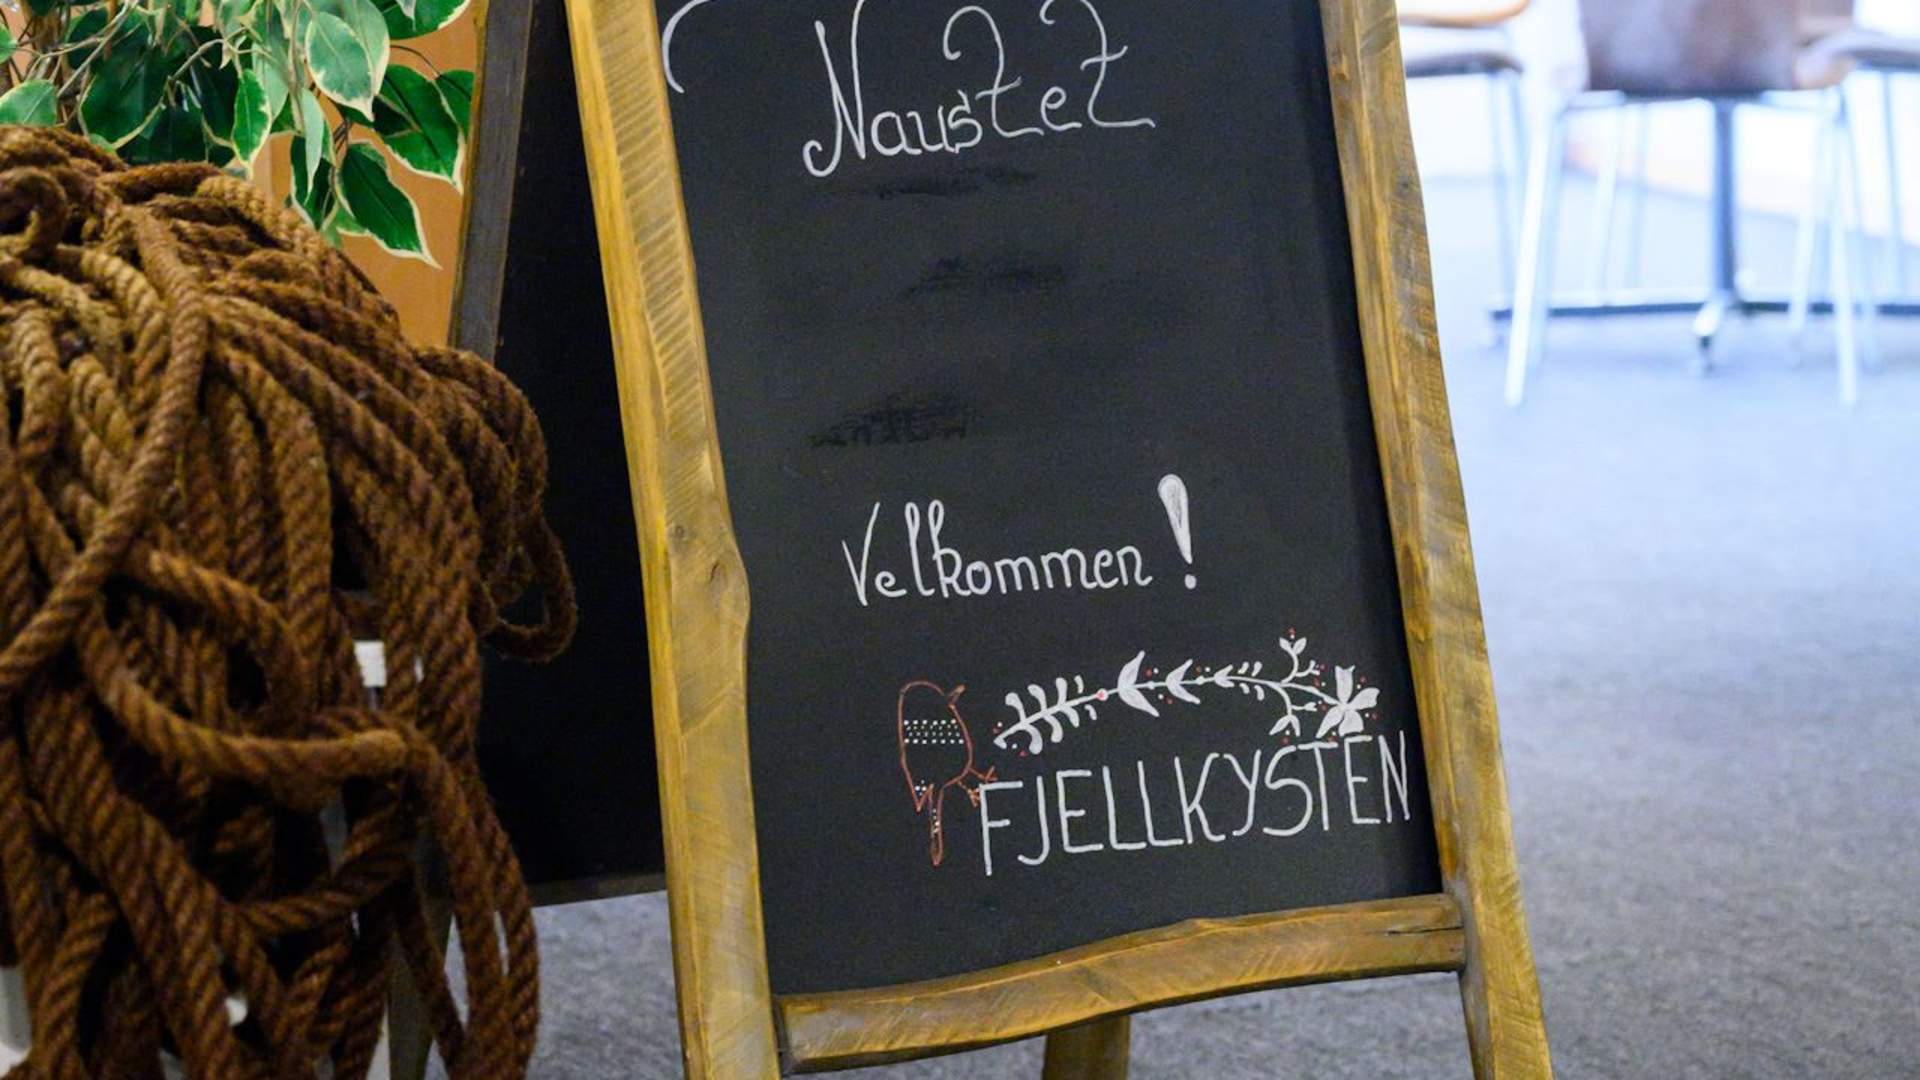 Naustet
Velkommen!
FJELLKYSTEN